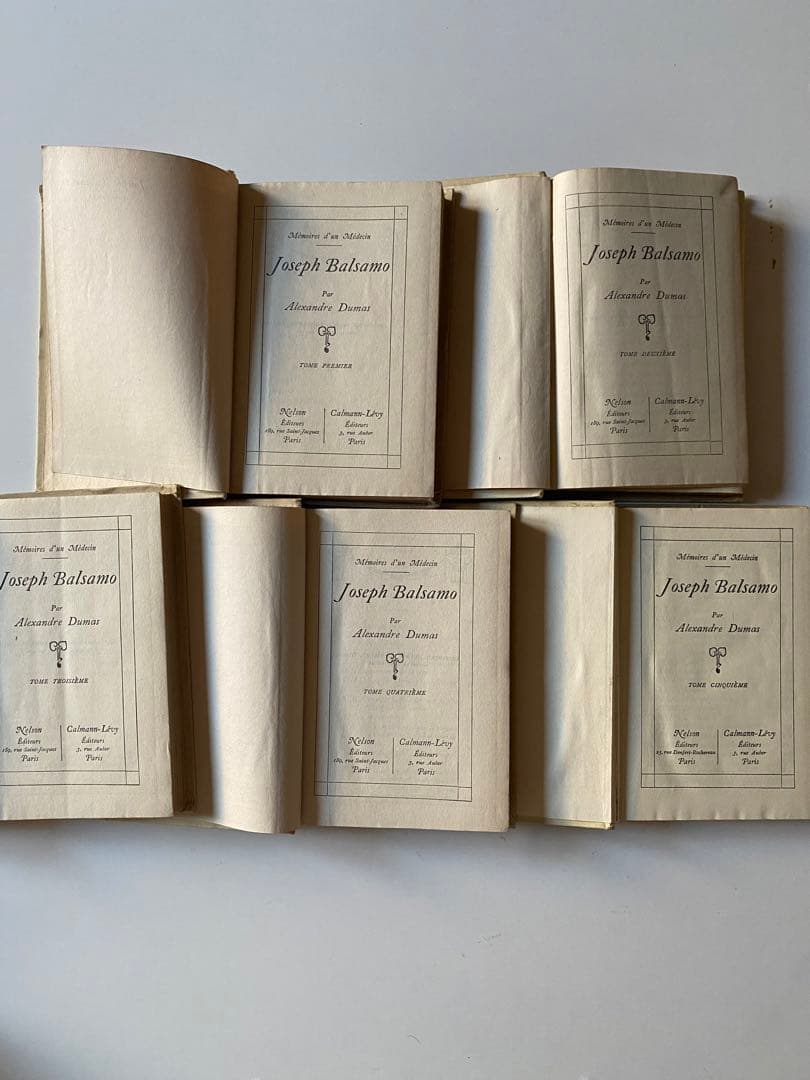 Mémoires d'un Médecin
Joseph Balsamo
Par
Alexandre Dumas
TOME PREMIER
Nelson
Éditeurs
189, rue Saint-Jacques
Paris
Calmann-Lévy
Éditeurs
3, rue Auber
Paris
Mémoires d'un Médecin
Joseph Balsamo
Par
Alexandre Dumas
TOME DEUXIÈME
Nelson
Éditeurs
189, rue Saint-Jacques
Paris
Calmann-Lévy
Éditeurs
3, rue Auber
Paris
Mémoires d'un Médecin
Joseph Balsamo
Par
Alexandre Dumas
TOME TROISIÈME
Nelson
Éditeurs
189, rue Saint-Jacques
Paris
Calmann-Lévy
Éditeurs
3, rue Auber
Paris
Mémoires d'un Médecin
Joseph Balsamo
Par
Alexandre Dumas
TOME QUATRIÈME
Nelson
Éditeurs
189, rue Saint-Jacques
Paris
Calmann-Lévy
Éditeurs
3, rue Auber
Paris
Mémoires d'un Médecin
Joseph Balsamo
Par
Alexandre Dumas
TOME CINQUIÈME
Nelson
Éditeurs
25, rue Denfert-Rochereau
Paris
Calmann-Lévy
Éditeurs
3, rue Auber
Paris